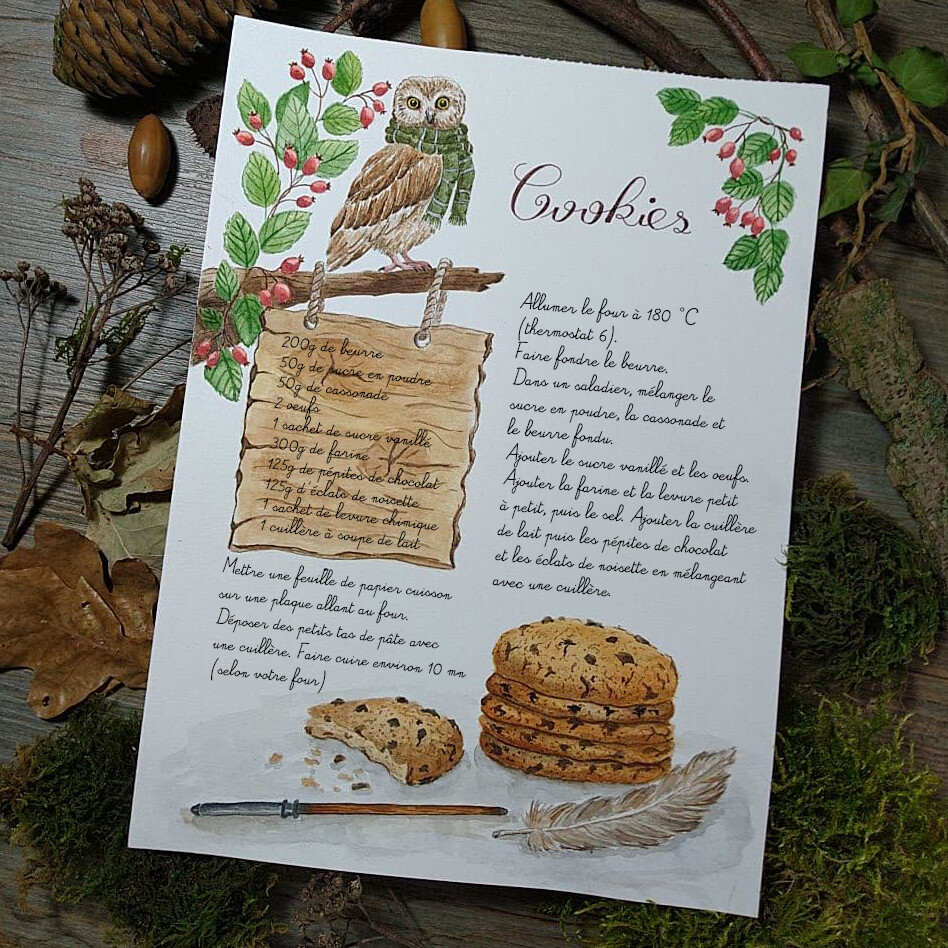 Cookies
200g de beurre
50g de sucre en poudre
50g de cassonade
2 oeufs
1 sachet de sucre vanillé
300g de farine
125g de pépites de chocolat
125g d'éclats de noisette
1 sachet de levure chimique
1 cuillère à soupe de lait
Allumer le four à 180 °C
(thermostat 6).
Faire fondre le beurre.
Dans un saladier, mélanger le
sucre en poudre, la cassonade et
le beurre fondu.
Ajouter le sucre vanillé et les oeufs.
Ajouter la farine et la levure petit
à petit, puis le sel. Ajouter la cuillère
de lait puis les pépites de chocolat
et les éclats de noisette en mélangeant
avec une cuillère.
Mettre une feuille de papier cuisson
sur une plaque allant au four.
Déposer des petits tas de pâte avec
une cuillère. Faire cuire environ 10 mn
(selon votre four)